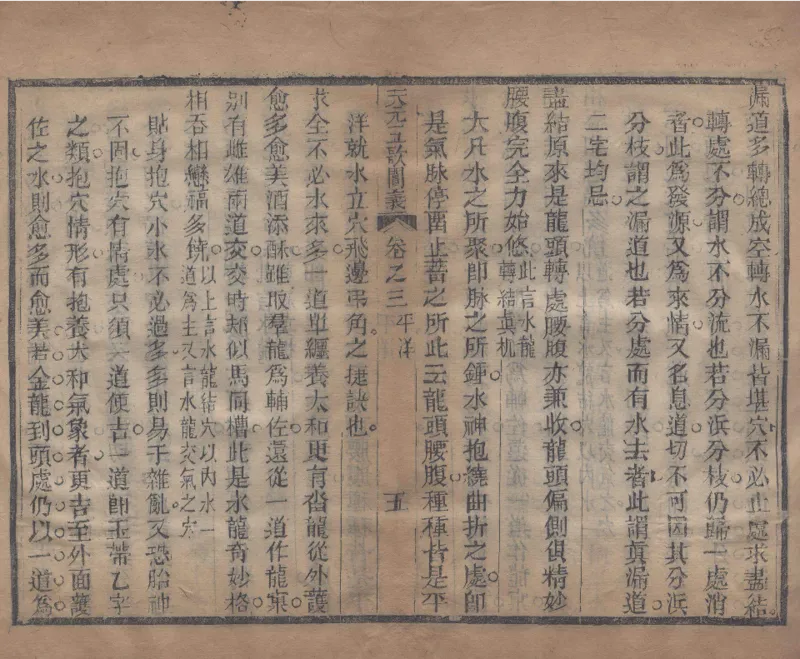 漏道多轉總成空轉水不漏皆堪穴不必止處求盡結
轉處不分謂水不分流也若分浜分枝仍歸一處消
者此為發源又為來情又名息道切不可因其分浜
分枝謂之漏道也若分處而有水去者此謂真漏道
二宅均忌
盡結原來是龍頭轉處腰腹亦兼收龍頭偏側俱精妙
腰腹完全力始悠此言水龍轉結真机
大凡水之所聚即脉之所鍾水神抱繞曲折之處即
是氣脉停畱止蓄之所此云龍頭腰腹種種皆是平
天元五歌闡義 卷之三 平洋 五
洋就水立穴飛邊弔角之捷訣也
求全不必水來多一道單纏養太和更有沓龍從外護
愈多愈美酒添酥雖取羣龍為輔佐還從一道作龍窠
別有雌雄兩道交交時類似馬同槽此是水龍奇妙格
相吞相戀福多饒以上言水龍結穴以內水一道為主又言水龍交氣之穴
貼身抱穴小水不必過多多則易于雜亂又恐胎神
不固抱穴有情處只須一道便吉一道即玉帶乙字
之類抱穴情形有抱養太和氣象者更吉至外面護
佐之水則愈多而愈美若金龍到頭處仍以一道為